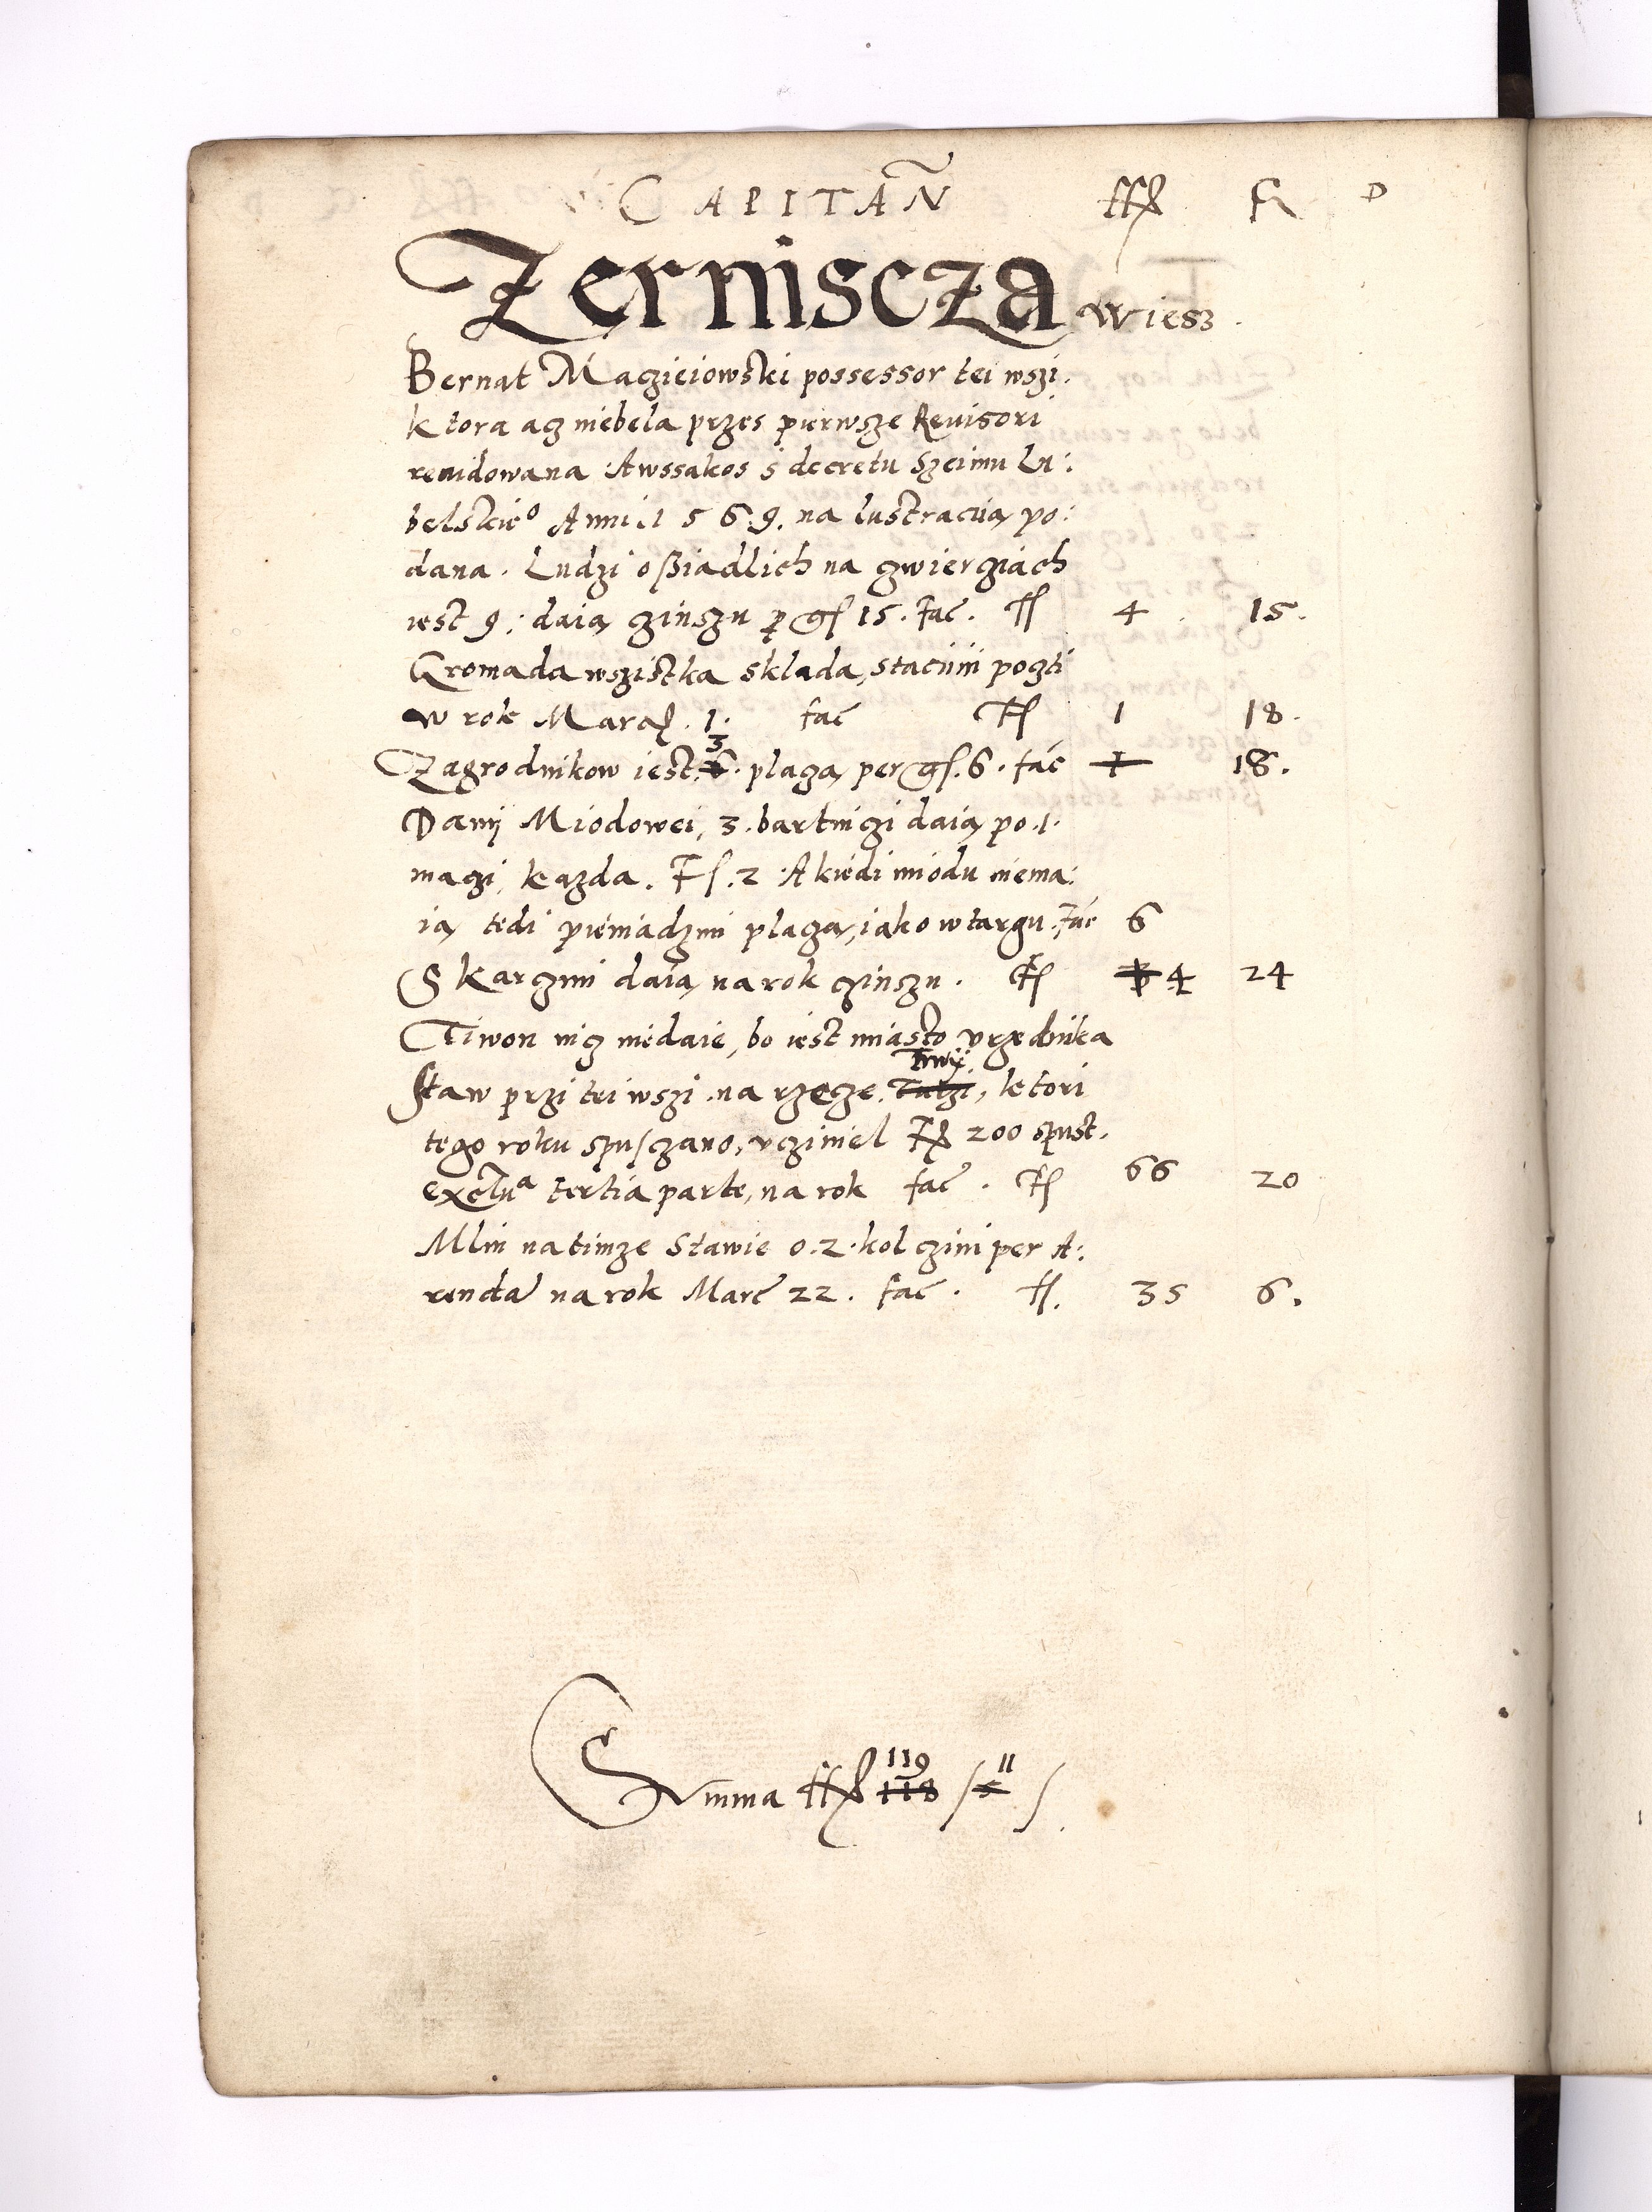 CAPITAÑ ffl G D
Zerniscza wiesz.
Bernat Maczieiowski possessor tei wszi.
ktora acz niebela przes pierwsze Reuisori
reuidowana Awssakos s decretu Szeimu Lu:
belskie° Anni. 1569. na lustracuią po:
dana. Ludzi oßiadlich na czwierciach
iest 9: daią czinszu p gs 15. fac. fl 4 15.
Gromada wszistka sklada, staciiii poczti
w rok Marcz. 1. fac fl 1 18.
Zagrodnikow iest. 3. placzą per gs. 6. fac 1 18.
Danij Miodowei, 3. bartniczi daią po. 1.
maczi, kazda. Fl. 2 Akiedi miodu niema:
ią tedi pieniadzmi placzą, iako wtargu. fac 6
S karczmi daią na rok czinszu. fl 3 4 24
Tiwon nicz niedaie, bo iest miasto vrzednika
Staw przi tei wszi na rzecze. , ktori
tego roku spusczano, vcziniel Fl 200 spust.
exctua tertia parte, na rok fac. fl 66 20
Mlin natimze Stawie o. 2. kol czini per A:
renda na rok Marc 22. fac. fl. 35 6.
Summa ffl 119 118 / 11 5 /